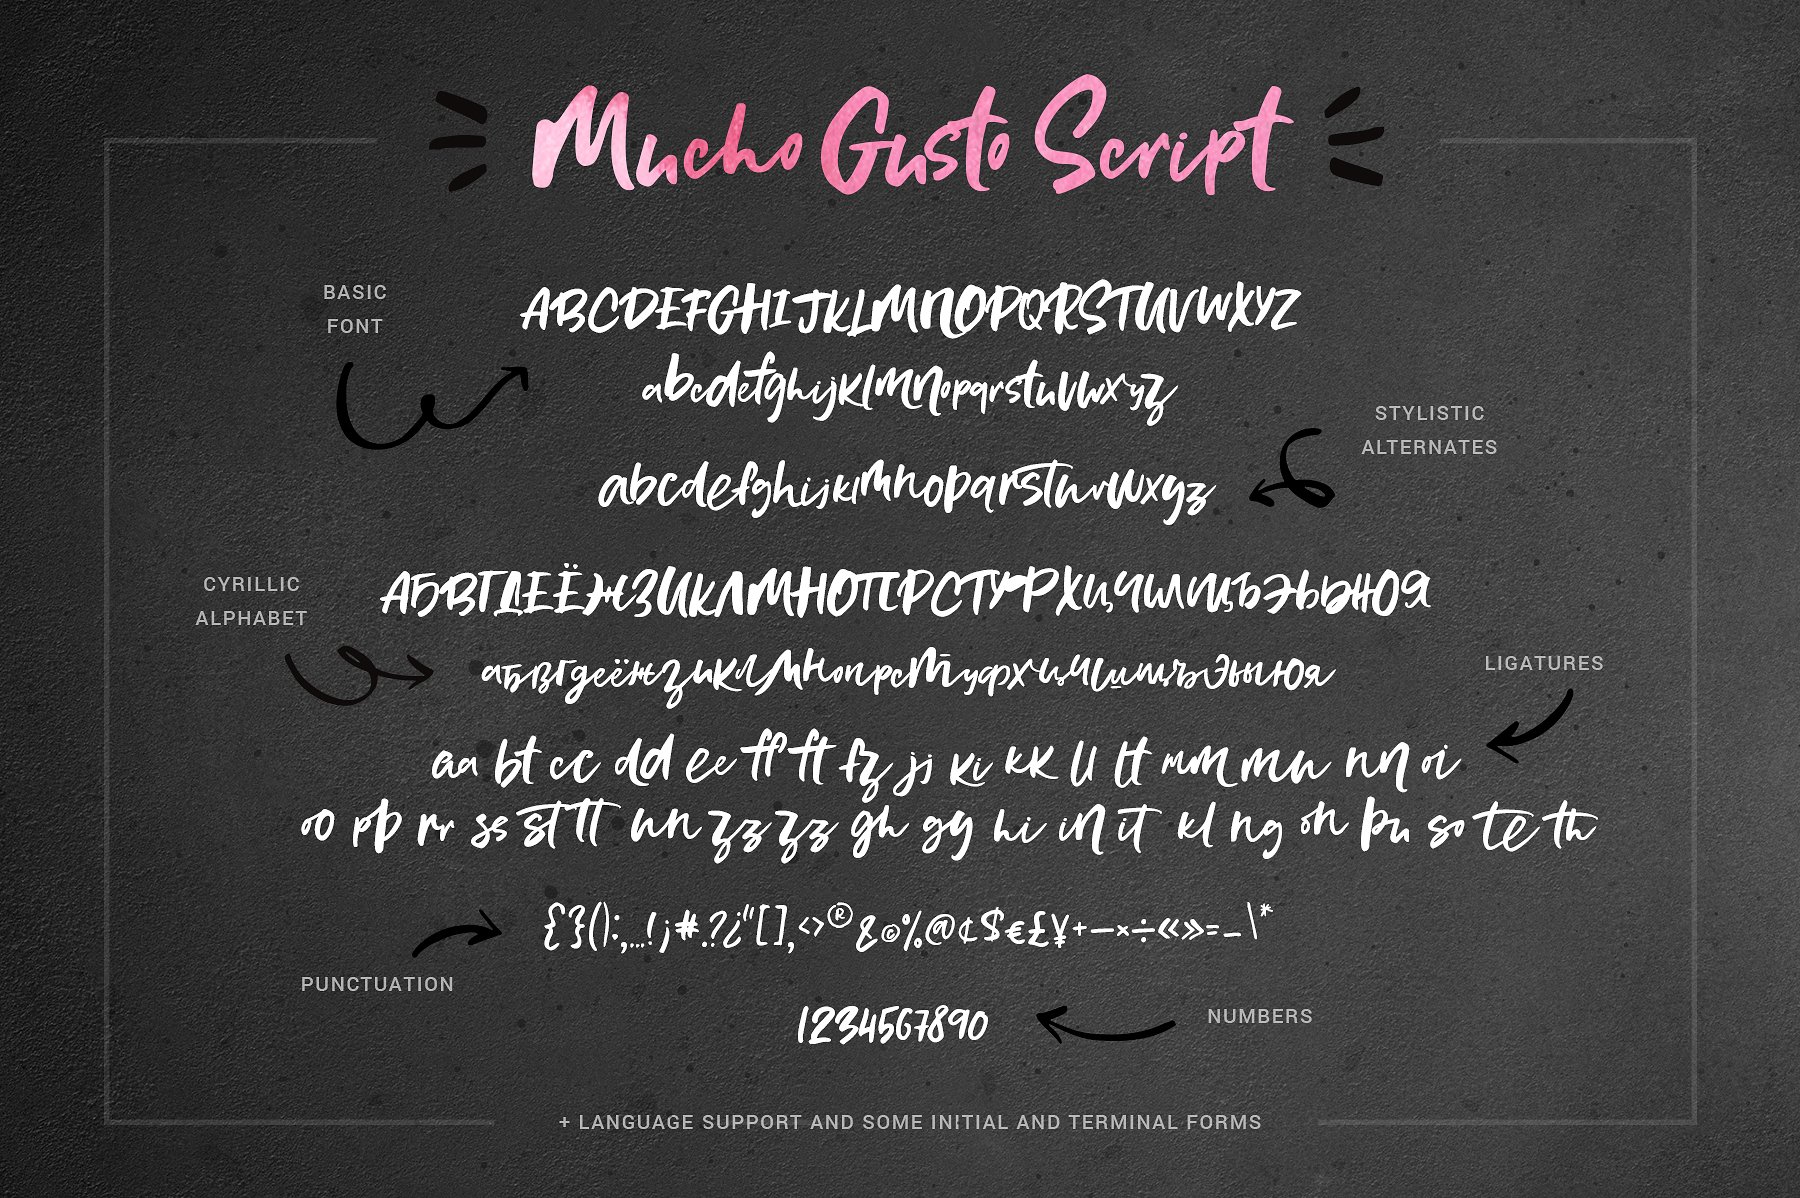 Mucho Gusto Script
BASIC
FONT
ABCDEFGHIJKLMNOPQRSTUVWXYZ
abcdefghijklmnopqrstuvwxyz
STYLISTIC
ALTERNATES
abcdefghijklmnopqrstuvwxyz
CYRILLIC
ALPHABET
АБВГДЕЁЖЗИКЛМНОПРСТУФХЦЧШЩЪЭЬЫНЮЯ
абвгдеёжзиклмнопрстуфхцчшщъэыьюя
LIGATURES
aa bt cc dd ee ff ft fz jj ki kk ll lt mm mn nn oi
oo pp rr ss st tt un zz zz gh gy hi in it kl ng on pu so te th
PUNCTUATION
{}():;,...!¡#.?¿"[],<>®&©%@¢$€£¥+—×÷«»=_\*
1234567890
NUMBERS
+ LANGUAGE SUPPORT AND SOME INITIAL AND TERMINAL FORMS